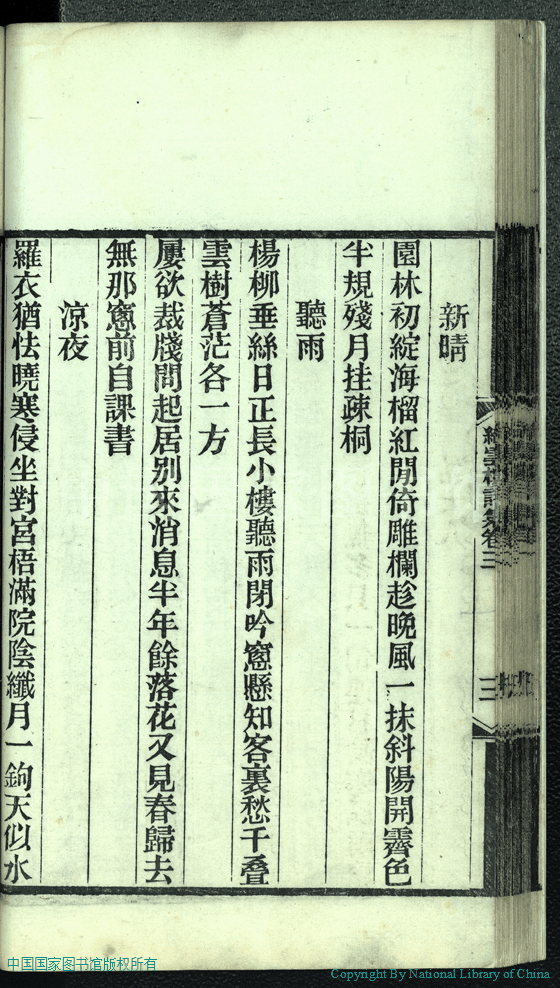 新晴
園林初綻海榴紅閒倚雕欄趁晚風一抹斜陽開霽色
半規殘月挂疎桐
聽雨
楊柳垂絲日正長小樓聽雨閉吟窻懸知客裏愁千疊
雲樹蒼茫各一方
屢欲裁牋問起居別來消息半年餘落花又見春歸去
無那窻前自課書
涼夜
羅衣猶怯曉寒侵坐對宮梧滿院陰纖月一鉤天似水
詩集卷三
三
中国国家图书馆版权所有
Copyright By National Library of China